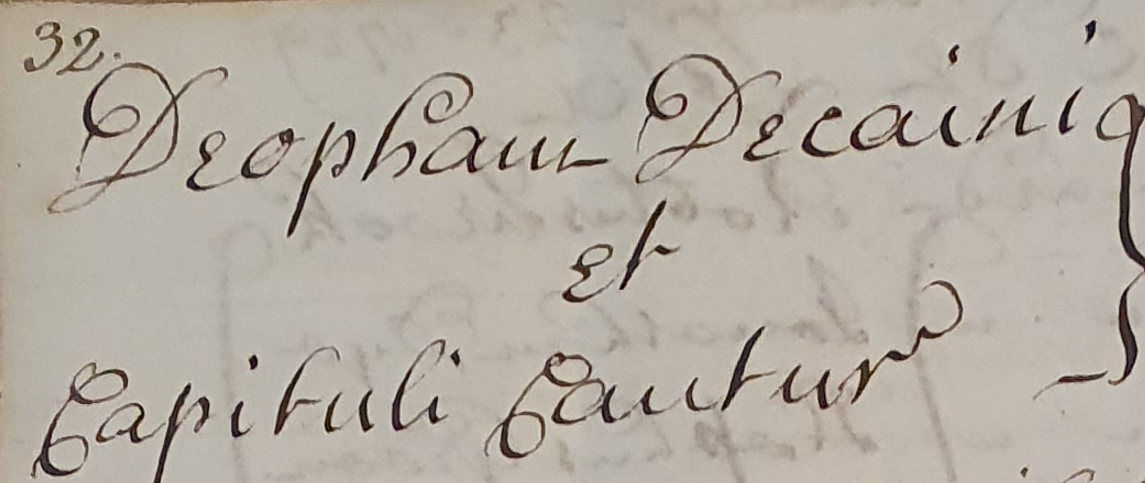 32.
Deopham Decaini
Et
Capituli Cantur